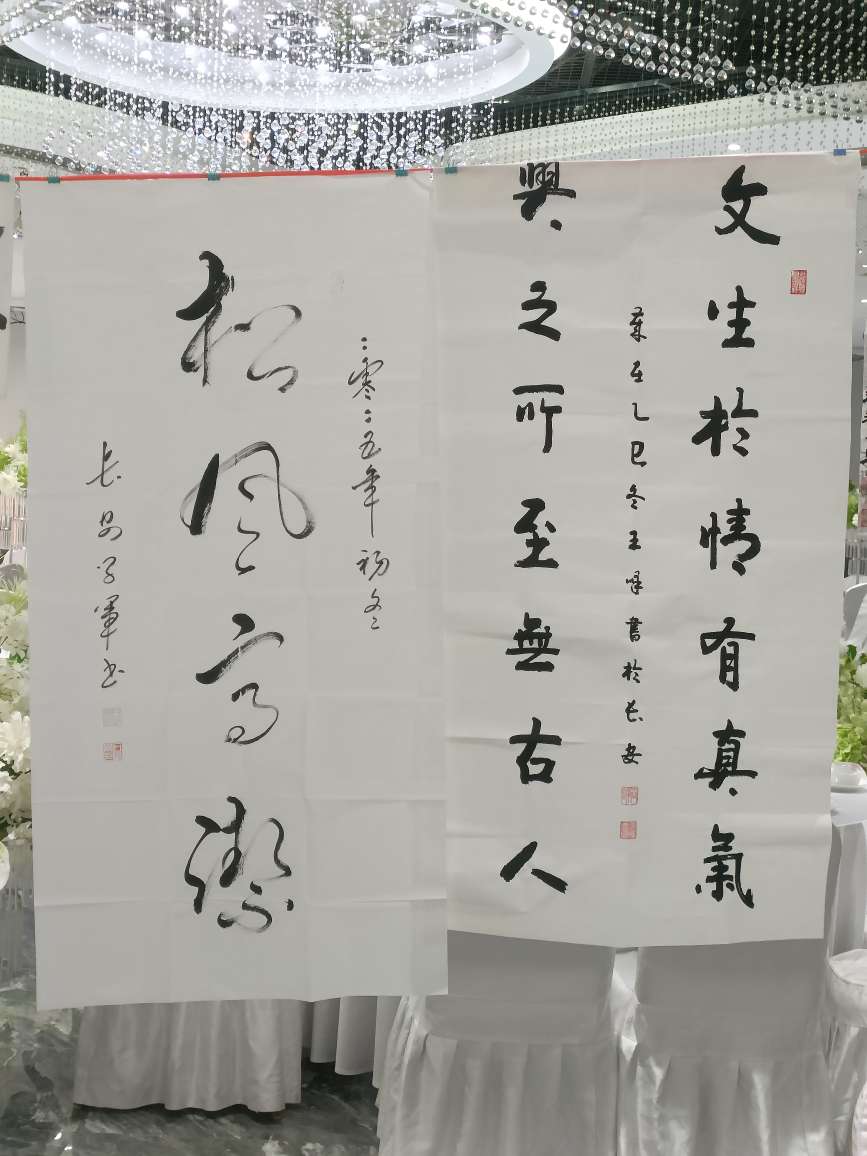 文生於情有真氣
興之所至無古人
歲在乙巳冬王峰書於長安
二零二五年初冬
松風高潔
長安学軍书